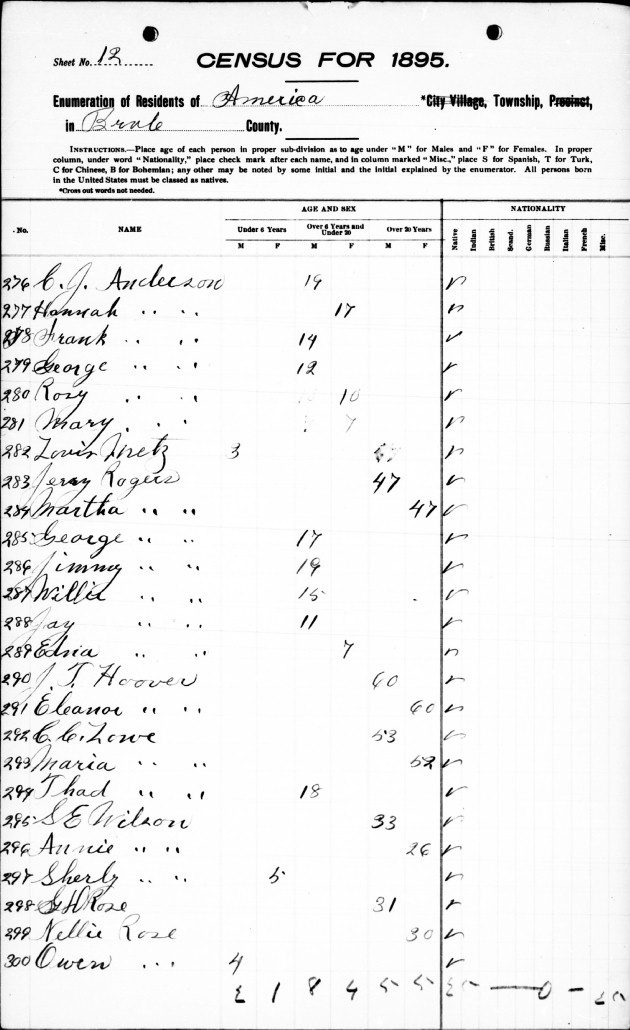 Sheet No. 12
CENSUS FOR 1895.
Enumeration of Residents of America *City Village, Township, Precinct,
in Brule County.
INSTRUCTIONS.—Place age of each person in proper sub-division as to age under "M" for Males and "F" for Females. In proper
column, under word "Nationality," place check mark after each name, and in column marked "Misc.," place S for Spanish, T for Turk,
C for Chinese, B for Bohemian; any other may be noted by some initial and the initial explained by the enumerator. All persons born
in the United States must be classed as natives.
*Cross out words not needed.
AGE AND SEX NATIONALITY
No. NAME Under 6 Years Over 6 Years and Under 20 Over 20 Years Native Indian British Scand. German Russian Italian French Misc.
M F M F M F
276 C. J. Anderson 19 ✓
277 Hannah " " 17 ✓
278 Frank " " 14 ✓
279 George " " 12 ✓
280 Rosy " " 10 ✓
281 Mary " " 7 ✓
282 Louis Metz 3 ✓
283 Jerry Rogers 47 ✓
284 Martha " " 47 ✓
285 George " " 17 ✓
286 Jimmy " " 19 ✓
287 Willie " " 15 ✓
288 Jay " " 11 ✓
289 Edna " " 7 ✓
290 J. T. Hoover 60 ✓
291 Eleanor " " 60 ✓
292 C. C. Lowe 53 ✓
293 Maria " " 52 ✓
294 Thad " " 18 ✓
295 S E Wilson 33 ✓
296 Annie " " 26 ✓
297 Sherly " " 5 ✓
298 G H Rose 31 ✓
299 Nellie Rose 30 ✓
300 Owen " 4 ✓
2 1 8 4 5 5 25 — 0 — 25